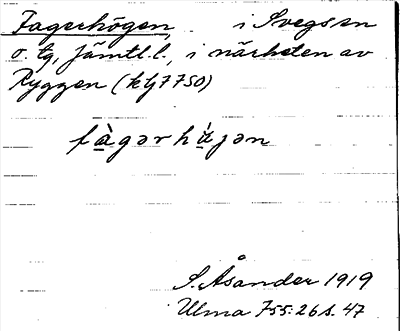 Fagerhögen, i Svegs sn
o. tg, Jämtl. l., i närheten av
Ryggen (ktj 7750)
fàgərhø̀jən
S. Åsander 1919
Ulma 755:26 s. 47